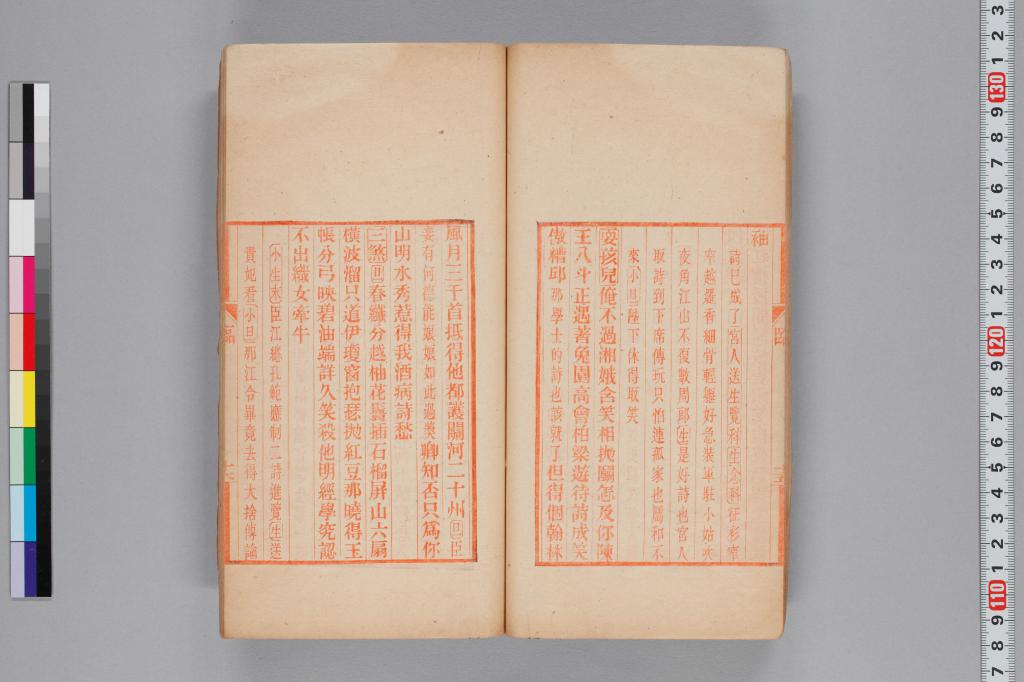 袖
詩已成了宮人送生覽科生念科征衫窄
窄越羅香細骨輕軀好急裝軍駐小姑吹
夜角江山不復數周郎生是好詩也宮人
取詩到下席傳玩只怕連孤家也屬和不
來小旦陛下休得取笑
耍孩兒俺不過湘娥含笑相拋怎及你陳
王八斗正遇著兔園高會柏梁遊待詩成笑
傲糟邱那學士的詩也該就了但得個翰林
風月三千首抵得他都護關河二十州旦臣
妾有何德能娘娘如此過獎聊知否只為你
山明水秀惹得我酒病詩愁
三煞旦春纖分越柚花鬟插石榴屏山六扇
橫波溜只道伊瓊窗抱瑟拋紅豆那曉得玉
帳分弓映碧油端詳久笑殺他明經學究認
不出織女牽牛
小生末臣江總孔範應制二詩進覽生送
貴妃看小旦那江令畢竟去得大捨傳諭
臨